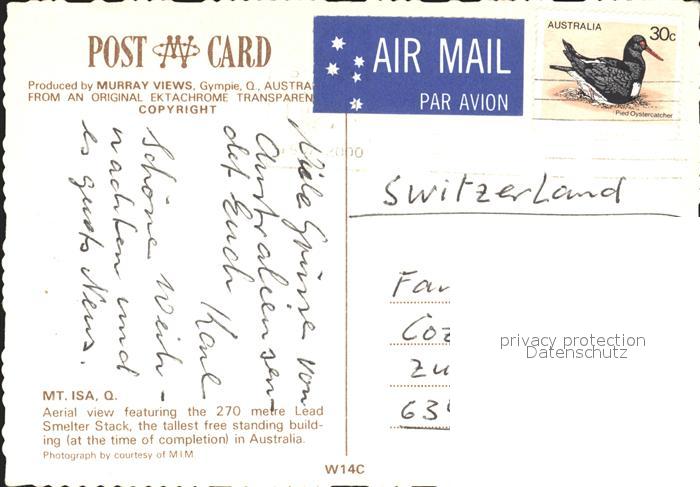 POST CARD
Produced by MURRAY VIEWS, Gympie, Q., AUSTRA
FROM AN ORIGINAL EKTACHROME TRANSPAREN
COPYRIGHT
AIR MAIL
PAR AVION
AUSTRALIA
30c
Pied Oystercatcher
Viele Grüsse von
Australien sen-
det Euch Karl
Schöne Weih-
nachten und
es gutes Neus.
Switzerland
Fa
Co
Zu
63
privacy protection
Datenschutz
MT. ISA, Q.
Aerial view featuring the 270 metre Lead
Smelter Stack, the tallest free standing build-
ing (at the time of completion) in Australia.
Photograph by courtesy of M I M.
W14C